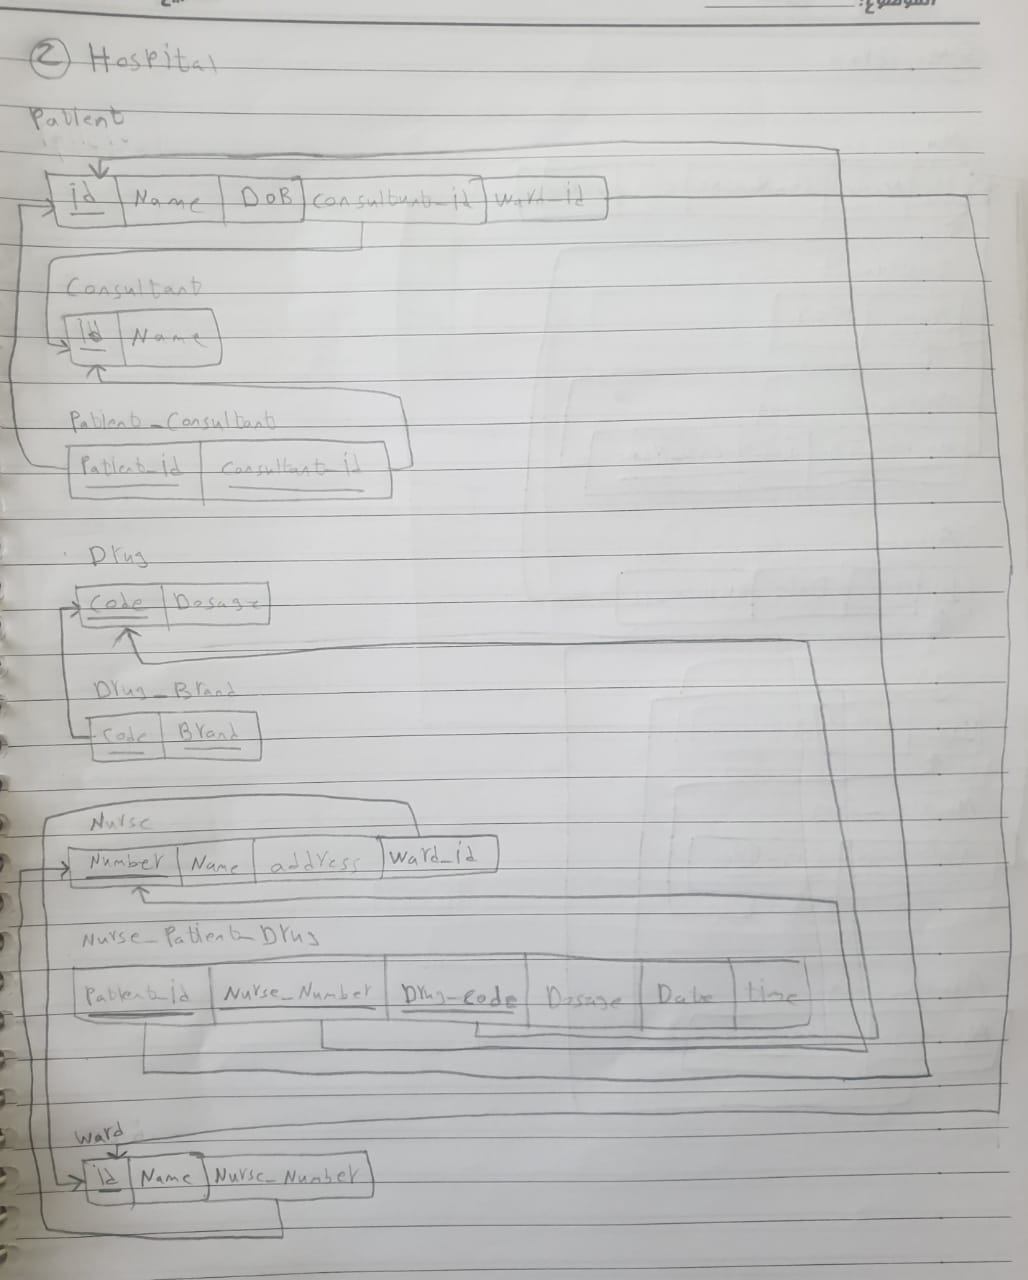 الموضوع:
② Hospital
Patient
id Name DoB Consultant_id Ward_id
Consultant
Id Name
Patient_Consultant
Patient_id Consultant_id
Drug
Code Dosage
Drug_Brand
Code Brand
Nurse
Number Name address Ward_id
Nurse_Patient_Drug
Patient_id Nurse_Number Drug_Code Dosage Date time
Ward
id Name Nurse_Number